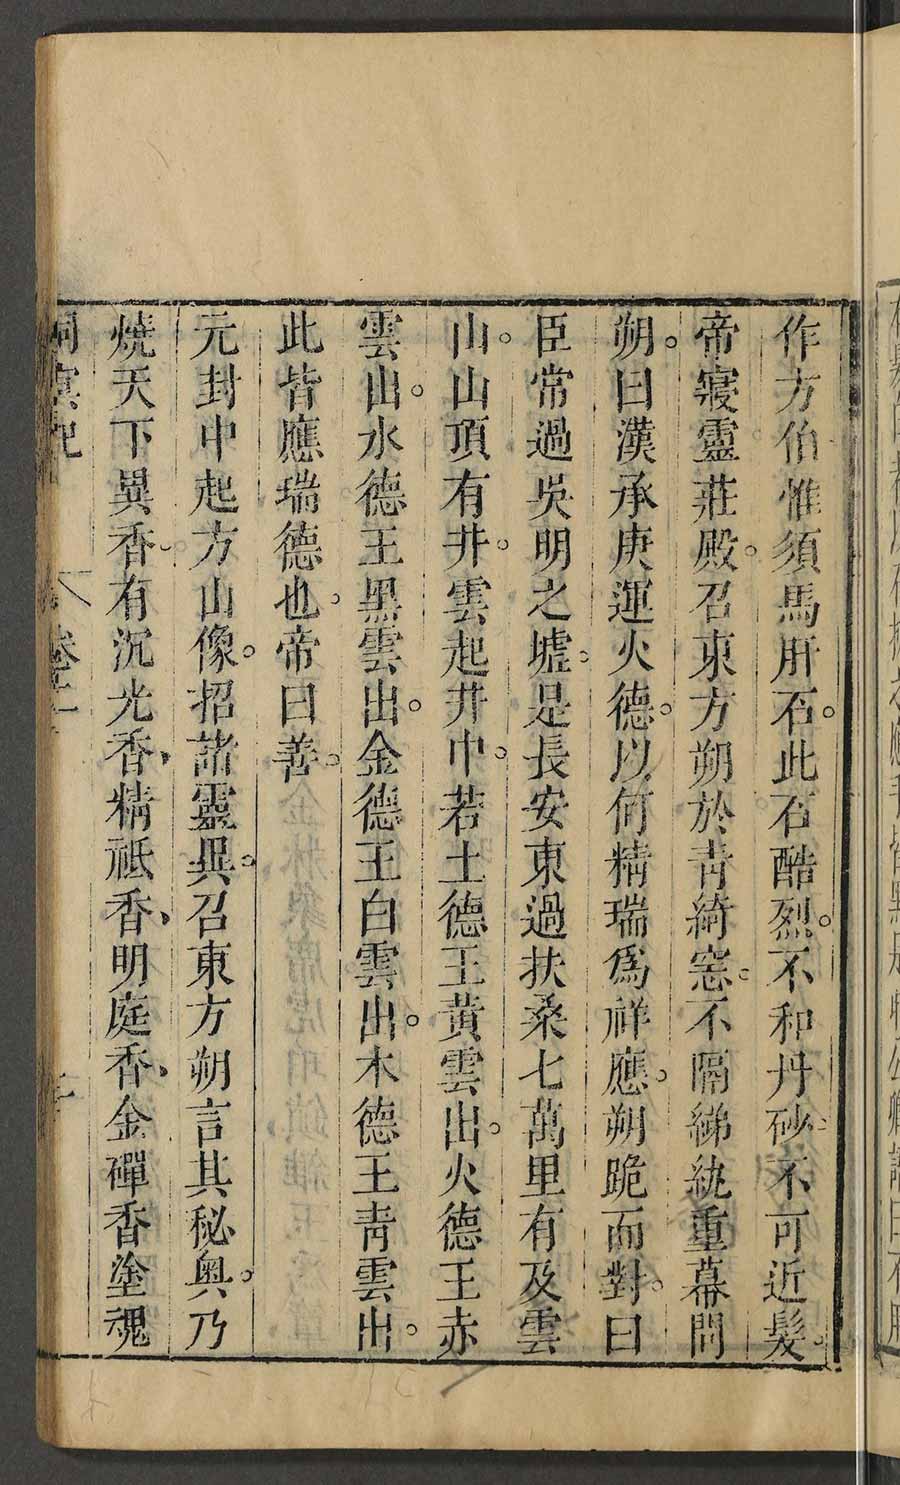 作方伯惟須馬肝石。此石酷烈。不和丹砂。不可近髮。
帝寢靈莊殿。召東方朔於青綺窓。不隔綈紈重幕問
朔。曰漢承庚運火德。以何精瑞爲祥應。朔跪而對。曰
臣常過吳明之墟。是長安東過扶桑七萬里有及雲
山。山頂有井。雲起井中。若土德王黃雲出。火德王赤
雲出。水德王黑雲出。金德王白雲出。木德王青雲出。
此皆應瑞德也。帝曰善。
元封中起方山像。招諸靈異。召東方朔言其秘奧。乃
燒天下異香。有沉光香，精祗香，明庭香，金磾香塗魂
洞冥記 卷二